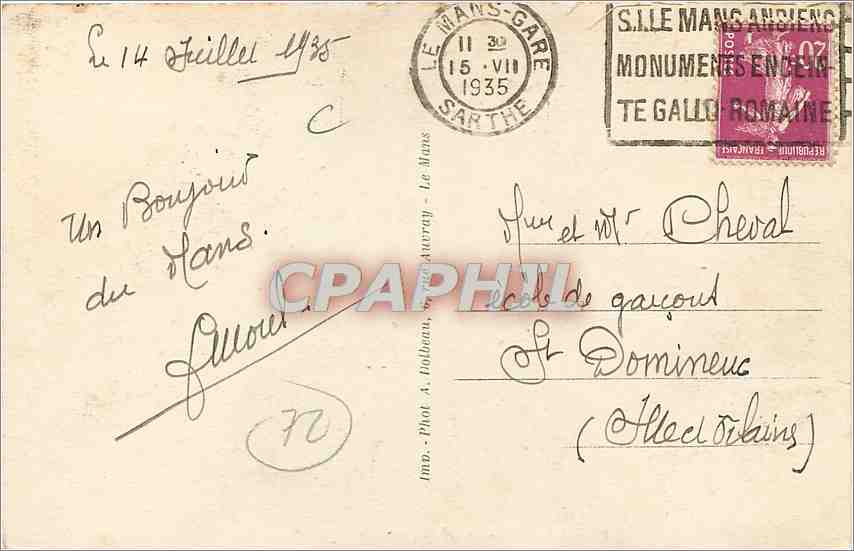 Le 14 Juillet 1935
C
Un Bonjour
du Mans.
72
Imp. - Phot A. Dolbeau, 6, rue Auvray - Le Mans
LE MANS-GARE
11 30
15 · VII
1935
SARTHE
S.I. LE MANS ANCIENS
MONUMENTS ENCEIN-
TE GALLO-ROMAINE
20
POSTES
RÉPUBLIQUE FRANÇAISE
Mme et Mr Cheval
école de garçons
St Domineuc
(Ille et Vilaine)
CPAPHIL